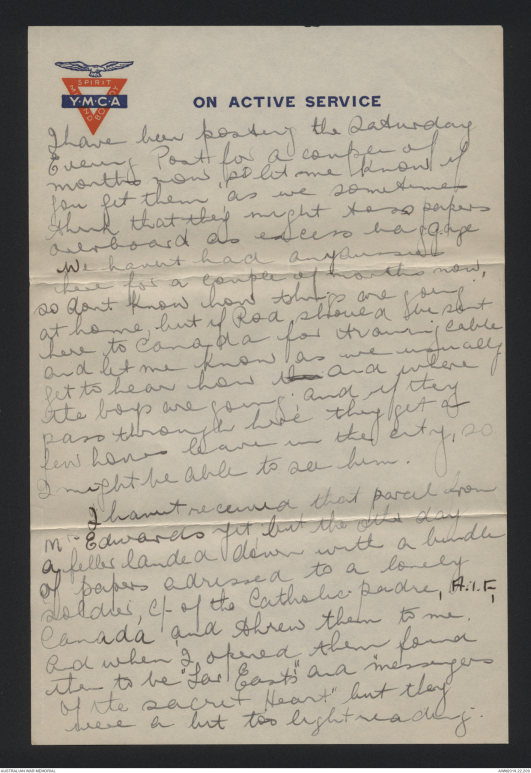 SPIRIT
Y·M·C·A
MIND BODY
ON ACTIVE SERVICE
I have been posting the Saturday
Evening Post for a couple of
months now, so let me know if
you get them, as we sometimes
think that they might toss papers
overboard as excess baggage
We havent had any aussies
here for a couple of months now,
so dont know how things are going
at home, but if Rod should be sent
here to Canada for training cable
and let me know as we usually
get to hear how and where
the boys are going; and if they
pass through here they get a
few hours leave in the city, so
I might be able to see him.
I havnt received that parcel from
Mrs Edwards yet but the other day
a feller landed down with a bundle
of papers adressed to a lonely
soldier, c/- of the Catholic padre, A.I.F,
Canada and threw them to me.
And when I opened them found
them to be "Far Easts" and "messengers
of the sacret Heart" but they
were a bit too light reading.
AUSTRALIAN WAR MEMORIAL